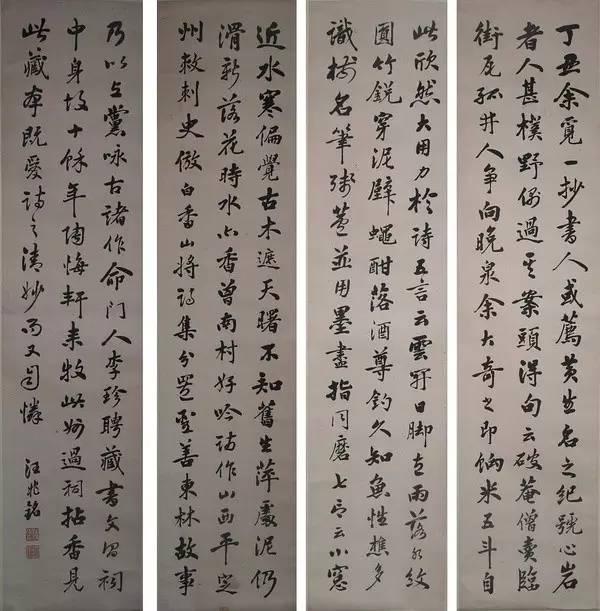 丁丑余覓一抄書人或薦黃生名之紀號心岩
者人甚樸野偶過其案頭得句云破菴僧賣臨
街瓦孤井人爭向晚泉余大奇之即餉米五斗自
此欣然大用力於詩五言云雲開日腳直雨落水紋
圓竹銳穿泥壁蠅酣落酒尊釣久知魚性樵多
識樹名筆蘆並用墨盡指同磨七言云小窓
近水寒偏覺古木遮天曙不知舊生萍處泥仍
滑新落花時水亦香曾南村好吟詩作山西平定
州刺史倣白香山將詩集分置聖善東林故事
乃以上黨咏古諸作命門人李珍聘藏書文昌祠
中身故十餘年陶悔軒來牧此州過祠拈香見
此藏本既愛詩之清妙而又自憐
汪兆銘